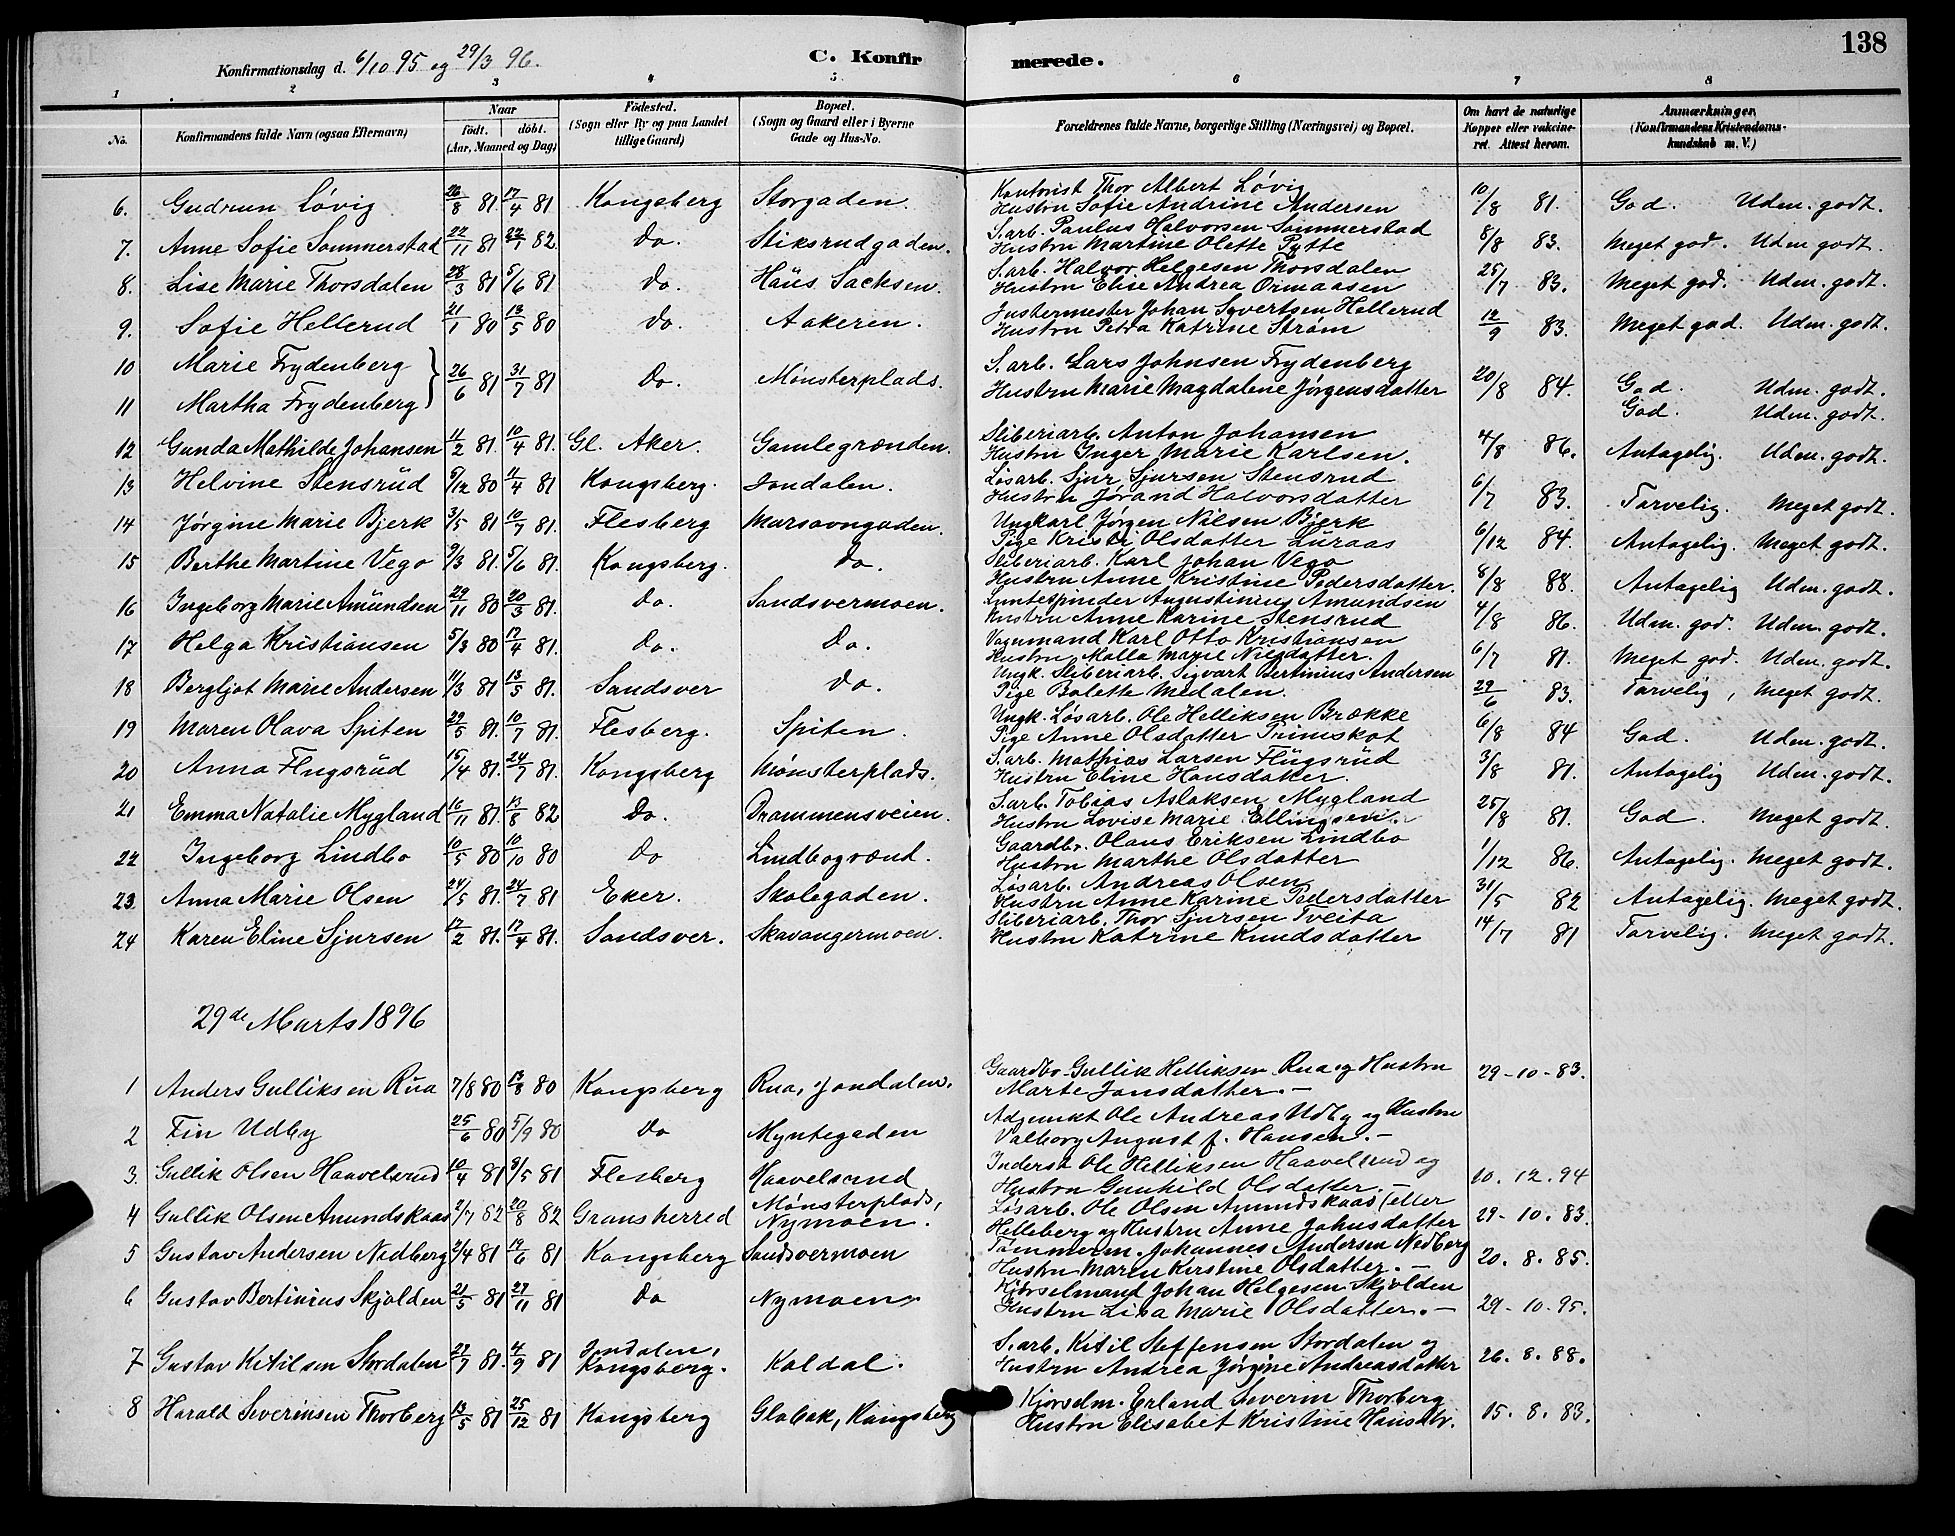 138
Konfirmationsdag d. 6/10 95 og 29/3 96.
C. Konfirmerede.
1 2 3 4 5 6 7 8
No. Konfirmandens fulde Navn (ogsaa Efternavn) Naar født. døbt. (Aar, Maaned og Dag) Födested. (Sogn eller By og paa Landet tillige Gaard) Bopæl. (Sogn og Gaard eller i Byerne Gade og Hus-No. Forældrenes fulde Navne, borgerlige Stilling (Næringsvei) og Bopæl. Om havt de naturlige Kopper eller vakcineret. Attest herom. Anmærkninger. (Konfirmandens Kristendomskundskab m. V.)
6. Gudrun Løvig 26/8 81. 17/4 81 Kongsberg Storgaden. Kontorist Thor Albert Løvig
Hustru Sofie Andrine Andersen 10/8 81. God. Udm. godt.
7. Anne Sofie Sommerstad 22/11 81 22/1 82 Do. Stiksrudgaden. S.arb. Paulus Halvorsen Sommerstad
Hustru Martine Olette Pytte 8/8 83. Meget god. Udm. godt.
8. Lise Marie Thorsdalen 28/3 81 5/6 81 Do. Haus Sachsen. S.arb. Halvor Helgesen Thorsdalen
Hustru Elise Andrea Ormaasen 25/7 83. Meget god. Udm. godt.
9. Sofie Hellerud 21/1 80 13/5 80 Do. Aakeren. Justermester Johan Syvertsen Hellerud
Hustru Petra Katrine Strøm 12/9 83. Meget god. Udm. godt.
10 Marie Frydenberg } 26/6 81 31/7 81 Do. Mønsterplads. S.arb. Lars Johnsen Frydenberg
Hustru Marie Magdalene Jørgensdatter 20/8 84. God. Udm. godt.
11 Martha Frydenberg God. Udm. godt.
12 Gunda Mathilde Johansen 11/2 81. 10/4 81. Gl. Aker. Gamlegrænden. Sliberiarb. Anton Johansen
Hustru Inger Marie Karlsen. 4/8 86. Antagelig. Udm. godt.
13 Helvine Stensrud 5/12 80 11/4 81 Kongsberg. Jondalen. Løsarb. Sjur Sjursen Stensrud
Hustru Jørand Halvorsdatter 6/7 83. Tarvelig. Meget godt.
14 Jørgine Marie Bjerk 3/5 81 10/7 81. Flesberg Marsovngaden. Ungkarl Jørgen Nilsen Bjerk
Pige Kristi Olsdatter Luraas 6/12 84. Antagelig. Meget godt.
15 Berthe Martine Vego 9/3 81. 5/6 81. Kongsberg. Do. Sliberiarb. Karl Johan Vego
Hustru Anne Kristine Pedersdatter. 8/8 88. Antagelig Udm. godt.
16 Ingeborg Marie Amundsen 29/11 80 20/3 81. Do. Sandsvermoen. Luntespinder Augustinius Amundsen
Hustru Anne Karine Stensrud 4/8 86. Udm. god. Udm. godt.
17 Helga Kristiansen 5/3 80 17/4 81. Do. Do. Vognmand Karl Otto Kristiansen
Hustru Malla Marie Nilsdatter. 6/7 81. Meget god. Udm. godt.
18 Bergljot Marie Andersen 11/3 81 13/5 81. Sandsver Do. Ungk. Sliberiarb. Sigvart Bertinius Andersen
Pige Bolette Medalen. 29/6 83. Tarvelig, Meget godt.
19 Maren Olava Spiten 29/5 81. 10/7 81. Flesberg. Spiten. Ungk. Løsarb. Ole Helliksen Brække
Pige Anne Olsdatter Trimskot 6/8 84 God. Udm. godt.
20 Anna Flugsrud 15/4 81. 24/7 81. Kongsberg Mønsterplads. S.arb. Mathias Larsen Flugsrud
Hustru Eline Hansdatter. 3/8 81. Antagelig Udm. godt.
21 Emma Natalie Mygland 16/11 81. 13/8 82 Do. Drammensveien. S.arb. Tobias Aslaksen Mygland
Hustru Lovise Marie Ellingsen. 25/8 81. God. Meget godt.
22 Ingeborg Lindbo 10/5 80 10/10 80 Do Lindbogrænd. Gaardbr. Olaus Eriksen Lindbo
Hustru Marthe Olsdatter 1/12 86. Antagelig. Meget godt.
23. Anna Marie Olsen 24/5 81. 24/7 81 Eker. Skolegaden. Løsarb. Andreas Olsen
Hustru Anne Karine Pedersdatter 31/5 82 Antagelig. Meget godt.
24 Karen Eline Sjursen 12/2 81. 17/4 81. Sandsver. Skavangermoen. Sliberiarb. Thor Sjursen Tveita
Hustru Katrine Knudsdatter 14/7 81 Tarvelig. Meget godt.
29de Marts 1896
1 Anders Gulliksen Rua 7/8 80 13/8 80 Kongsberg Rua, Jondalen, Gaardbr. Gullik Helliksen Rua og Hustru
Marte Jonsdatter. - 29-10-83.
2 Fin Udby 25/6 80 5/9 80 Do Myntegaden Adjunkt Ole Andreas Udby og Hustru
Valborg August f. Hansen. -
3. Gullik Olsen Haavelsrud 10/4 81 8/5 81 Flesberg Haavelsrud Inderst Ole Helliksen Haavelsrud og
Hustru Gunhild Olsdatter. - 10. 12. 94
4 Gullik Olsen Amundskaas 2/7 82 20/8 82 Gransherred Mønsterplads, Nymoen. Løsarb. Ole Olsen Amundskaas (eller
Helleberg og Hustru Anne Johnsdatter 29-10. 83.
5 Gustav Andersen Nedberg 2/4 81 19/6 81 Kongsberg Sandsvermoen Tømmerm. Johannes Andersen Nedberg
Hustru Maren Kirstine Olsdatter. - 20. 8. 85.
6 Gustav Bertinius Skjolden 21/5 81 27/11 81 Do Nymoen Kjørselmand Johan Helgesen Skjolden
Hustru Lisa Marie Olsdatter. - 29-10-95.
7 Gustav Kitilsen Stordalen 27/7 81. 4/9 81 Jondalen, Kongsberg. Koldal. S.arb. Kitil Steffensen Stordalen og
Hustru Andrea Jørgine Andreasdatter 26. 8. 88.
8 Harald Severinsen Thorberg 13/5 81 25/12 81 Kongsberg Glabak, Kongsberg Kjørselm. Erland Severin Thorberg
Hustru Elisabet Kristine Hansdtr. 15. 8. 83.